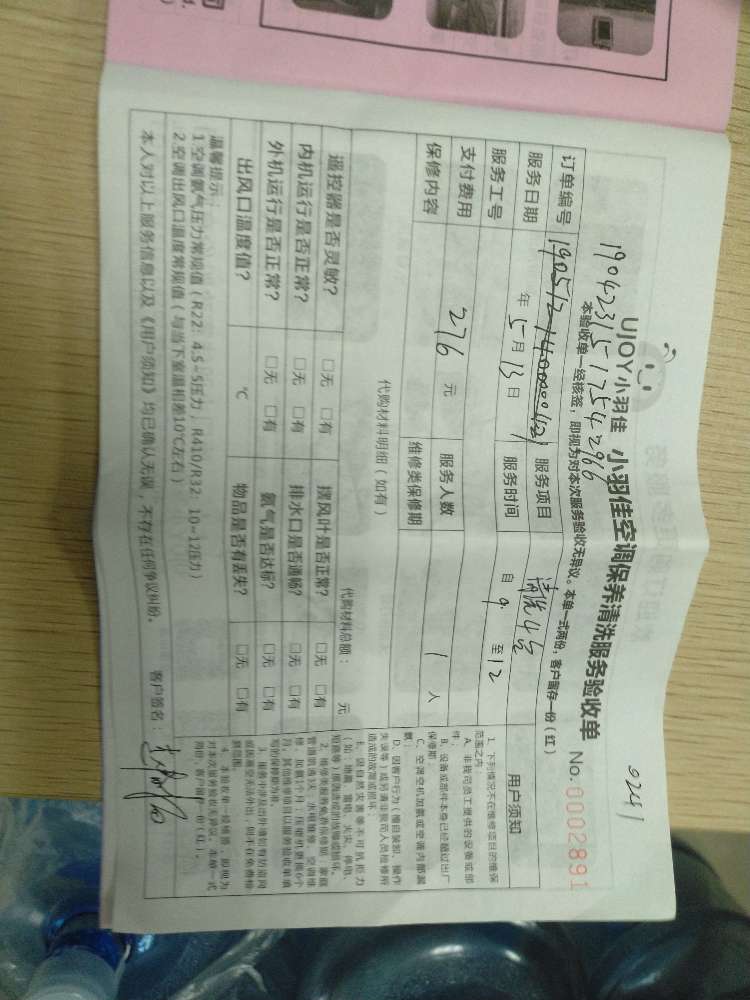 0241
UJOY小羽佳 小羽佳空调保养清洗服务验收单 No.0002891
1904231517542966
本验收单一经核签，即视为对本次服务验收无异议。本单一式两份，客户留存一份（红）
订单编号 服务项目 清洗4台
服务日期 年 5月13日 服务时间 自 9 至12
服务工号
支付费用 276 元 服务人数 1 人
保修内容 维修类保修期
代购材料明细（如有）
代购材料总额： 元
遥控器是否灵敏？ □无 □有 摆风叶是否正常？ □无 □有
内机运行是否正常？ □无 □有 排水口是否通畅？ □无 □有
外机运行是否正常？ □无 □有 氨气是否达标？ □无 □有
出风口温度值？ ℃ 物品是否有丢失？ □无 □有
温馨提示：
1.空调氨气压力常规值（R22：4.5~5压力；R410/R32：10~12压力）
2.空调出风口温度常规值（与当下室温相差10℃左右）
本人对以上服务信息以及《用户须知》均已确认无误，不存在任何争议纠纷。 客户签名：
用户须知
1、下列情况不在维修项目的维保
范围之内：
A、非我司员工提供的设备或部
件；
B、设备或部件本身已经超过出厂
保修期；
C、空调空机加氨或空调内部漏
氨；
D、因客户行为（擅自装卸、操作
失误等）或另请非我司人员检修所
造成的故障或损坏；
E、因自然灾害等不可抗拒力